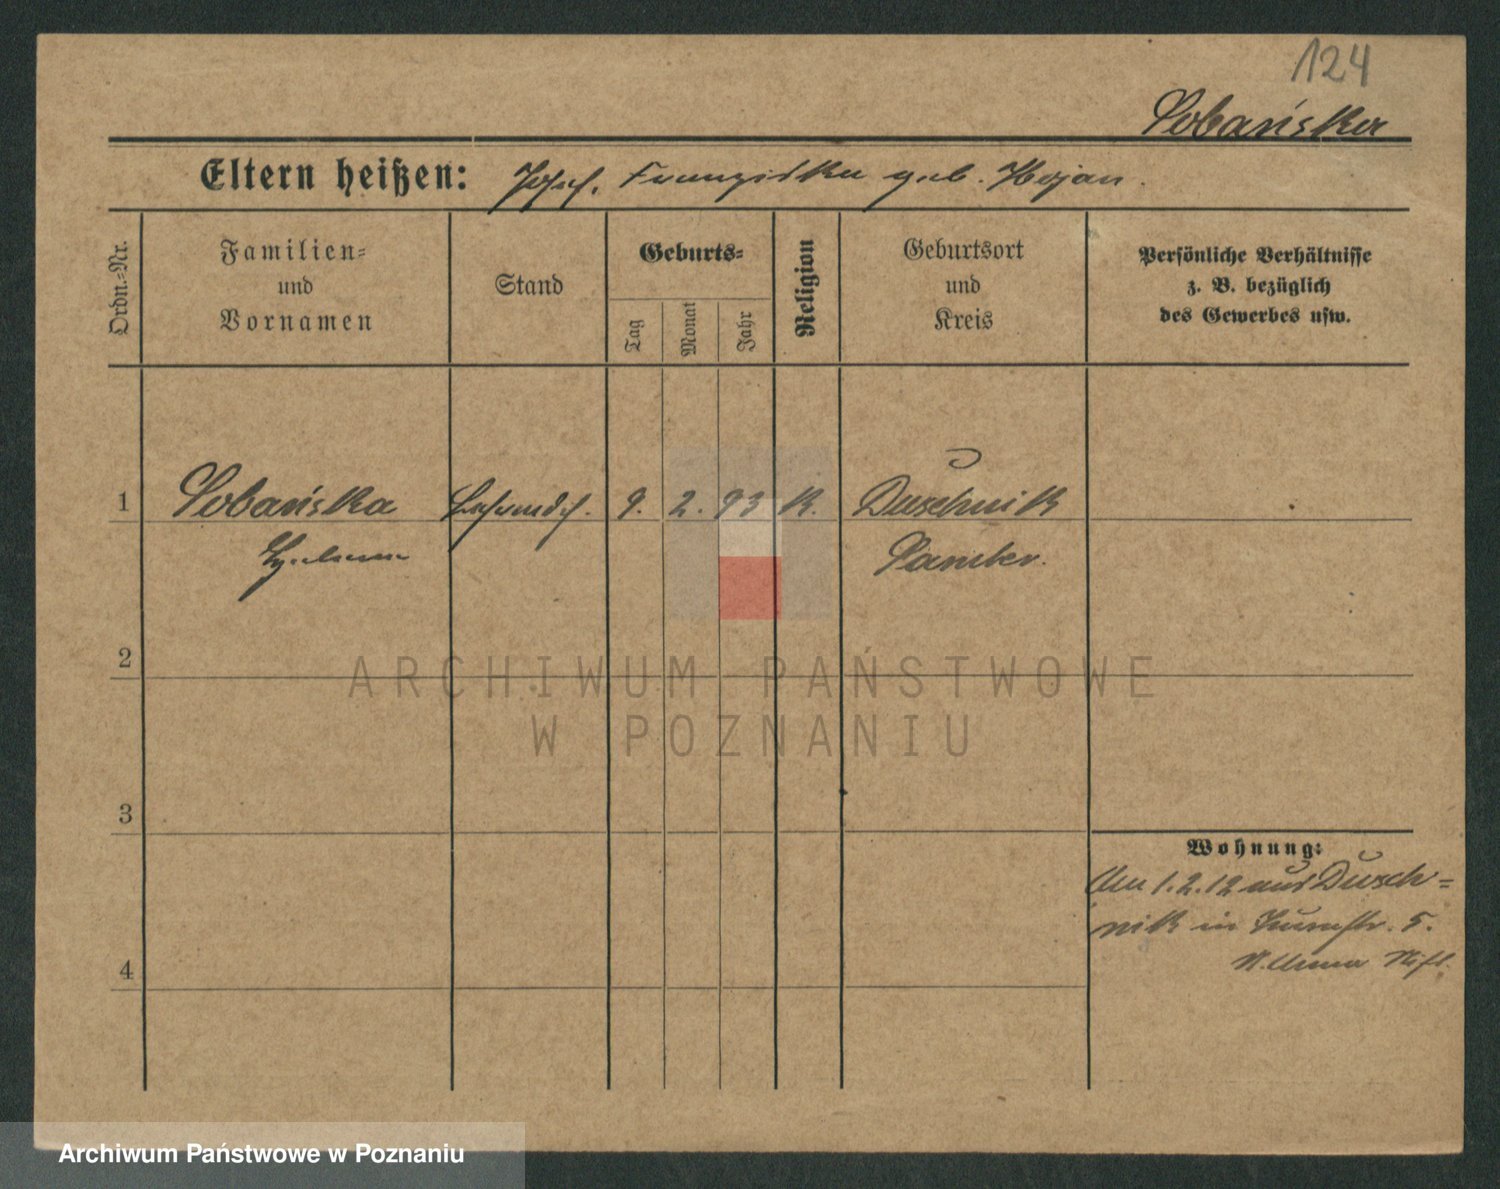 124
Sobańska
Eltern heißen: Josef, Franziska geb. Hojan.
Ordn.-Nr.
Familien- und Vornamen
Stand
Geburts-
Tag
Monat
Jahr
Religion
Geburtsort und Kreis
Persönliche Verhältnisse
z. B. bezüglich
des Gewerbes usw.
1 Sobańska 9. 2. 93 K. Duschnik
Samter.
2
3
4
Wohnung:
Am 1.2.12 aus Dusch=
nik in 5.
ARCHIWUM PAŃSTWOWE
W POZNANIU
Archiwum Państwowe w Poznaniu